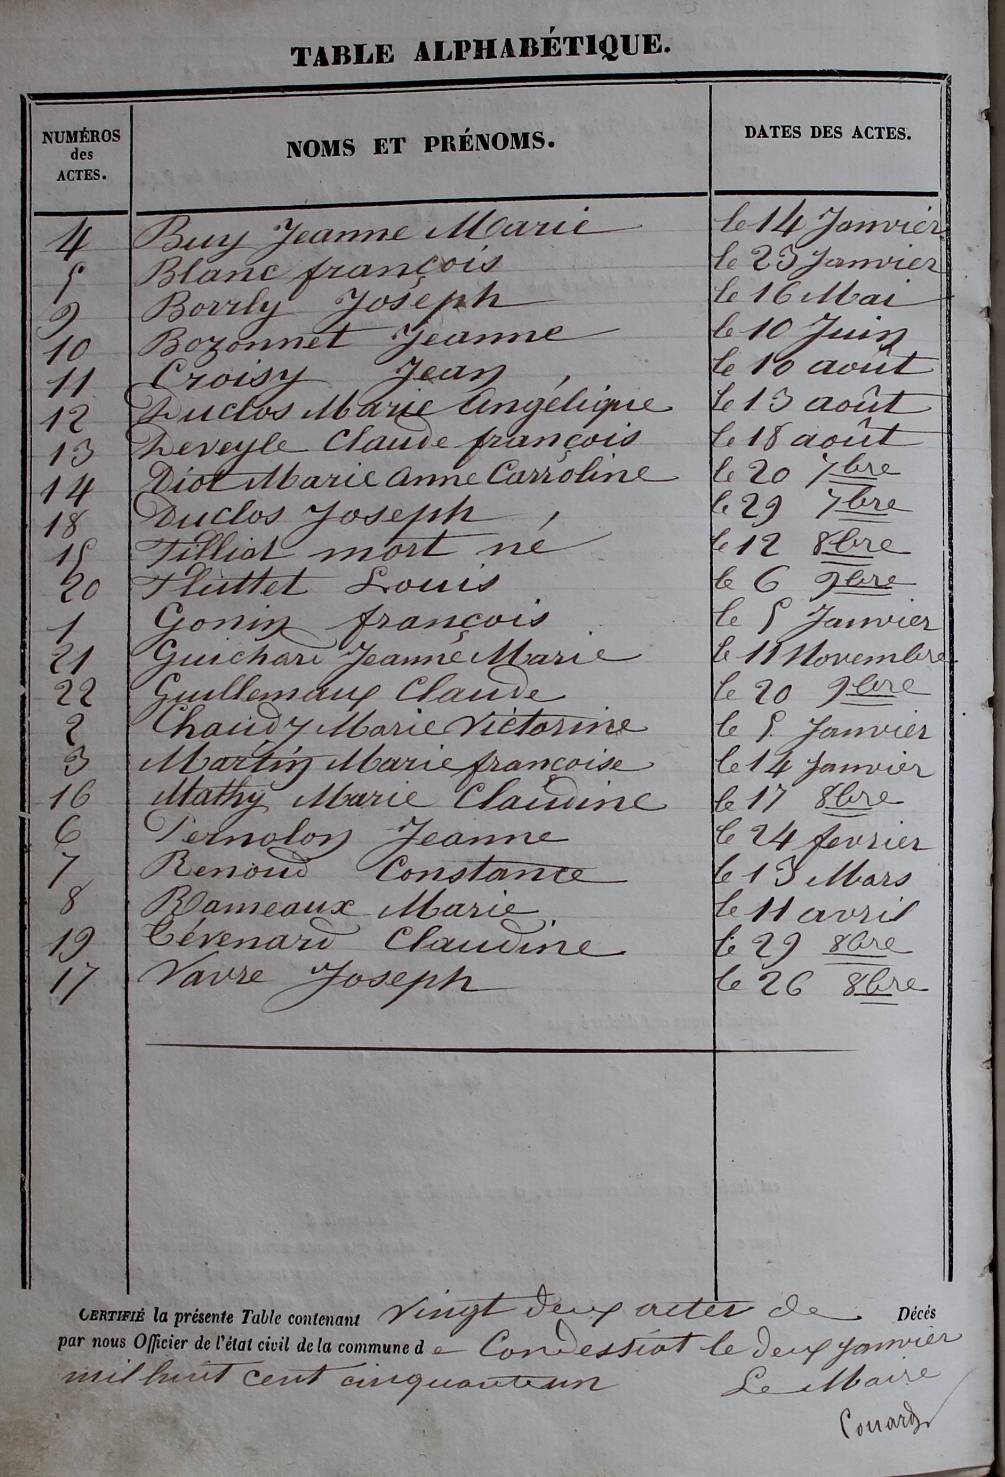 TABLE ALPHABÉTIQUE.
NUMÉROS des ACTES. NOMS ET PRÉNOMS. DATES DES ACTES.
4 Buy Jeanne Marie le 14 Janvier
5 Blanc françois le 23 Janvier
9 Borrly Joseph le 16 Mai
10 Bozonnet Jeanne le 10 Juin
11 Croisy Jean le 10 août
12 Duclos Marie Angélique le 13 août
13 Deveyle Claude françois le 18 août
14 Diot Marie Anne Carroline le 20 7bre
18 Duclos Joseph le 29 7bre
15 Filliat mort né le 12 8bre
20 Fluttet Louis le 6 9bre
1 Gonin françois le 5 Janvier
21 Guichard Jeanne Marie le 11 Novembre
22 Guillemaux Claude le 20 9bre
2 Chaudy Marie Victorine le 5 Janvier
3 Martin Marie françoise le 14 Janvier
16 Mathy Marie Claudine le 17 8bre
6 Pernolon Jeanne le 24 fevrier
7 Renoud Constance le 13 Mars
8 Rameaux Marie le 11 avril
19 Tévenard Claudine le 29 8bre
17 Vavre Joseph le 26 8bre
CERTIFIÉ la présente Table contenant vingt deux actes de Décés
par nous Officier de l'état civil de la commune de Condessiat le deux janvier
mil huit cent cinquante un Le Maire